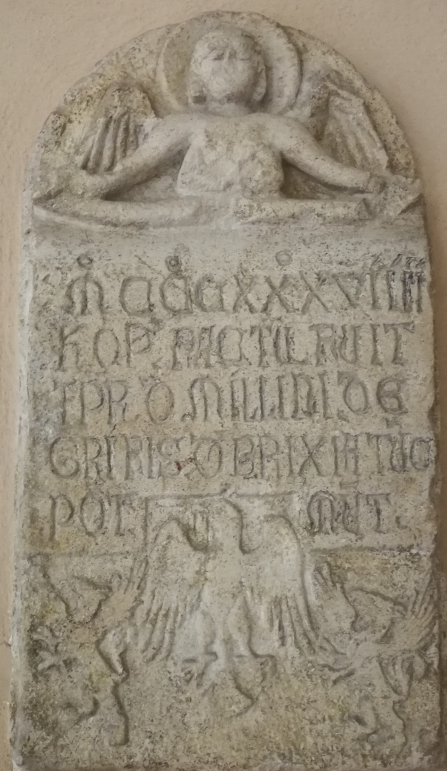 M CCC XXXVIIII
HOP. FACTU FUIT
TPR. D MILLINI DE
GRIFIS D BRIXIA TUC
POT MUT.